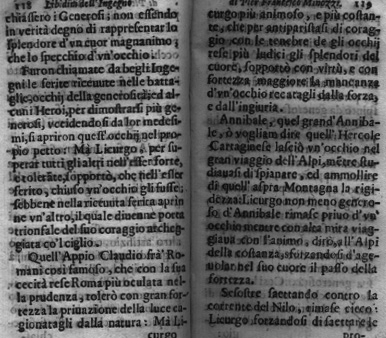 118 Libidini dell'Ingegno
chiassero i Generosi; non essendo
in verità degno di rappresentar lo
splendore d'vn cuor magnanimo;
che lo specchio d'vn'occhio.
Furon chiamate da begli Inge-
gni le ferite riceuute nelle batta-
glie, occhij della generosità; ed al-
cuni Heroi, per dimostrarsi più ge-
nerosi, vccidendosi da lor medesi-
mi, s'apriron quest'occhij nel pro-
pio petto: Mà Licurgo, per su-
perar tutti gli altri nell'esser forte,
e tolerãte, sopportò, che nell'esser
ferito, chiuso vn'occhio gli fusse;
sebbene nella riceuuta ferica aprin-
ne vn'altro, il quale diuenne porta
trionfale del suo coraggio archeg-
giata co'l ciglio.
Quell'Appio Claudio frà Ro-
mani così famoso, che con la sua
cecità rese Roma più oculata nel-
la prudenza, tolerò con gran for-
tezza la priuazione della luce ca-
gionatagli dalla natura: Mà Li-
curgo
di Pier Francesco Minozzi. 119
curgo più animoso, e più costan-
te, che per antiparistasi di corag-
gio, con le tenebre de gli occhij
rese più lucidi gli splendori del
cuore, sopportò con virtù, e con
fortezza maggiore la mancanza
d'vn'occhio recatagli dalla forza,
e dall'ingiuria.
Annibale, quel grand'Anniba-
le, ò vogliam dire quell'Hercole
Cartaginese lasciò vn'occhio nel
gran viaggio dell'Alpi, mẽtre stu-
diauasi di spianare, ed ammollire
di quell'aspra Montagna la rigi-
dezza: Licurgo non meno genero-
so d'Annibale rimase priuo d'vn'
occhio mentre con alta mira viag-
giaua con l'animo, dirò, all'Alpi
della costanza, sforzandosi d'age-
uolar nel suo cuore il passo della
fortezza.
Sesostre saettando contro la
corrente del Nilo, rimase cieco:
Licurgo forzandosi di saettare le
pro-